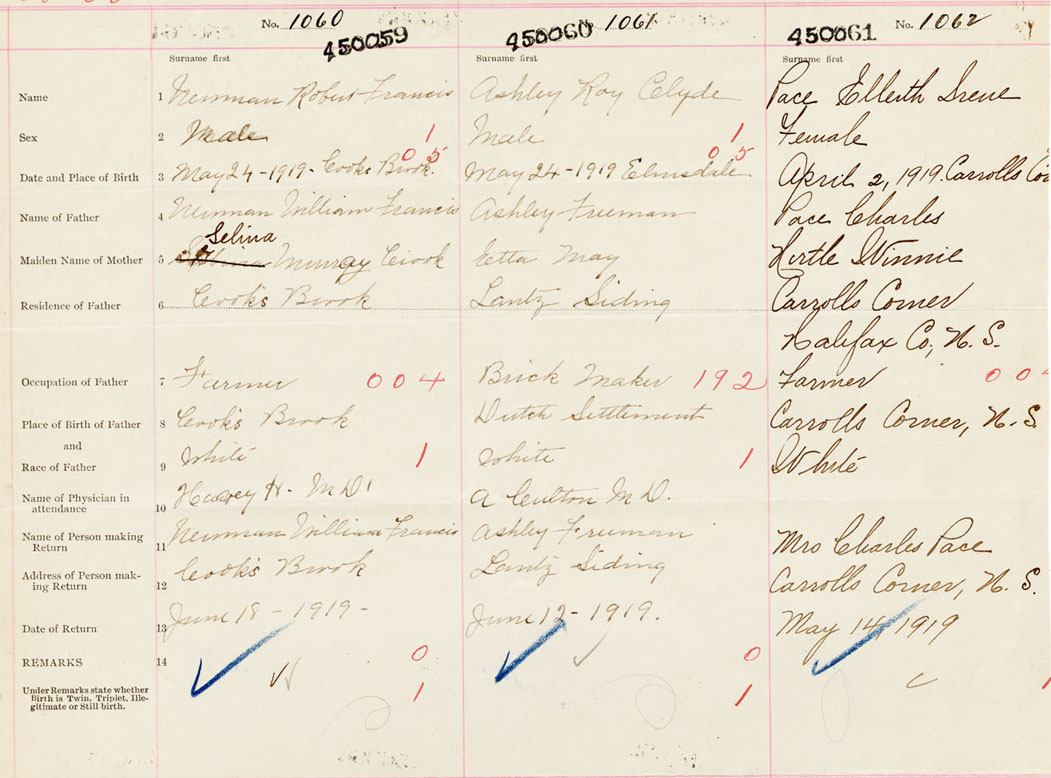 No. 1060 No. 1061 No. 1062
450059 450060 450061
Surname first Surname first Surname first
Name 1 Newman Robert Francis Ashley Roy Clyde Pace Ellerth Irene
Sex 2 Male 1 Male 1 Female
05 05
Date and Place of Birth 3 May 24 - 1919 - Cooks Brook. May 24 - 1919 Elmsdale April 2, 1919. Carrolls Cor
Name of Father 4 Newman William Francis Ashley Freeman Pace Charles
Selina
Maiden Name of Mother 5 Murray Cook Etta May Hirtle Winnie
Residence of Father 6 Cook's Brook Lantz Siding Carrolls Corner
Halifax Co; N. S.
Occupation of Father 7 Farmer 004 Brick Maker 192 Farmer 00
Place of Birth of Father 8 Cook's Brook Dutch Settlement Carrolls Corner, N. S.
and
Race of Father 9 White 1 White 1 White
Name of Physician in
attendance 10 H. M D. A M D.
Name of Person making
Return 11 Newman William Francis Ashley Freeman Mrs Charles Pace
Address of Person mak-
ing Return 12 Cook's Brook Lantz Siding Carrolls Corner, N. S.
Date of Return 13 June 18 - 1919 - June 12 - 1919. May 14, 1919
REMARKS 14 0 0
Under Remarks state whether
Birth is Twin, Triplet, Ille-
gitimate or Still birth. 1 1 1